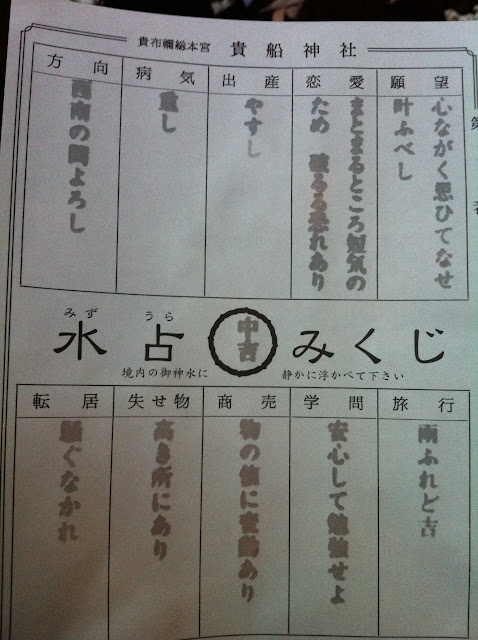 貴布禰総本宮 貴船神社
願望
心ながく思ひてなせ
叶ふべし
恋愛
まとまるところ短気の
ため 破るる恐れあり
出産
やすし
病気
重し
方向
西南の間よろし
みず うら
水占 中吉 みくじ
境内の御神水に 静かに浮かべて下さい
旅行
雨ふれど吉
学問
安心して勉強せよ
商売
物の値に変動あり
失せ物
高き所にあり
転居
騒ぐなかれ
第